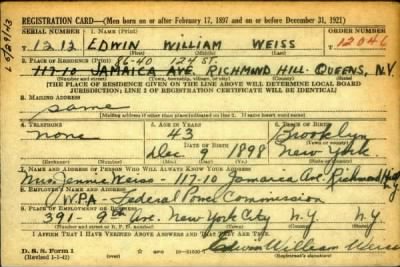 REGISTRATION CARD—(Men born on or after February 17, 1897 and on or before December 31, 1921)
SERIAL NUMBER 1. NAME (Print) ORDER NUMBER
1212 EDWIN WILLIAM WEISS 12046
(First) (Middle) (Last)
2. PLACE OF RESIDENCE (Print) 86-40 124 ST.
117-10 JAMAICA AVE. RICHMOND HILL QUEENS, N.Y.
(Number and street) (Town, township, village, or city) (County) (State)
[THE PLACE OF RESIDENCE GIVEN ON THE LINE ABOVE WILL DETERMINE LOCAL BOARD
JURISDICTION; LINE 2 OF REGISTRATION CERTIFICATE WILL BE IDENTICAL]
3. MAILING ADDRESS
Same
[Mailing address if other than place indicated on line 2. If same insert word same]
4. TELEPHONE 5. AGE IN YEARS 6. PLACE OF BIRTH
none 43 Brooklyn
DATE OF BIRTH (Town or county)
Dec. 9 1898 New York
(Exchange) (Number) (Mo.) (Day) (Yr.) (State or country)
7. NAME AND ADDRESS OF PERSON WHO WILL ALWAYS KNOW YOUR ADDRESS
Mrs. Jennie Weiss - 117-10 Jamaica Ave Richmond Hill
8. EMPLOYER'S NAME AND ADDRESS
WPA - Federal Power Commission
9. PLACE OF EMPLOYMENT OR BUSINESS
391 - 9th Ave. New York City N.Y. N.Y.
(Number and street or R. F. D. number) (Town) (County) (State)
I AFFIRM THAT I HAVE VERIFIED ABOVE ANSWERS AND THAT THEY ARE TRUE.
D. S. S. Form 1
(Revised 1-1-42) (over) Edwin William Weiss